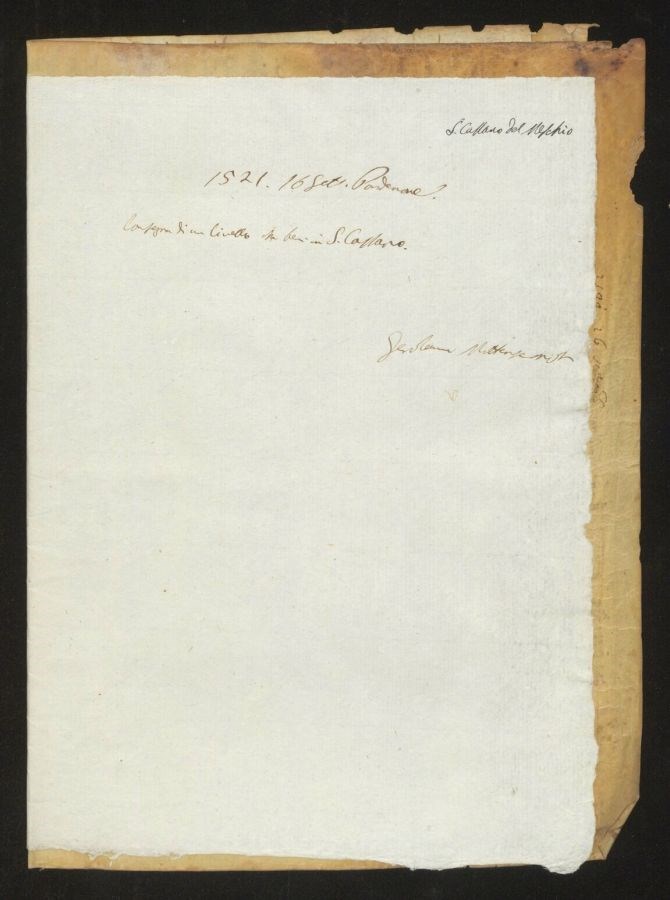 S. Cassano del Meschio
1521. 16 Sett. Pordenone.
Consegna di un livello su beni in S. Cassano.